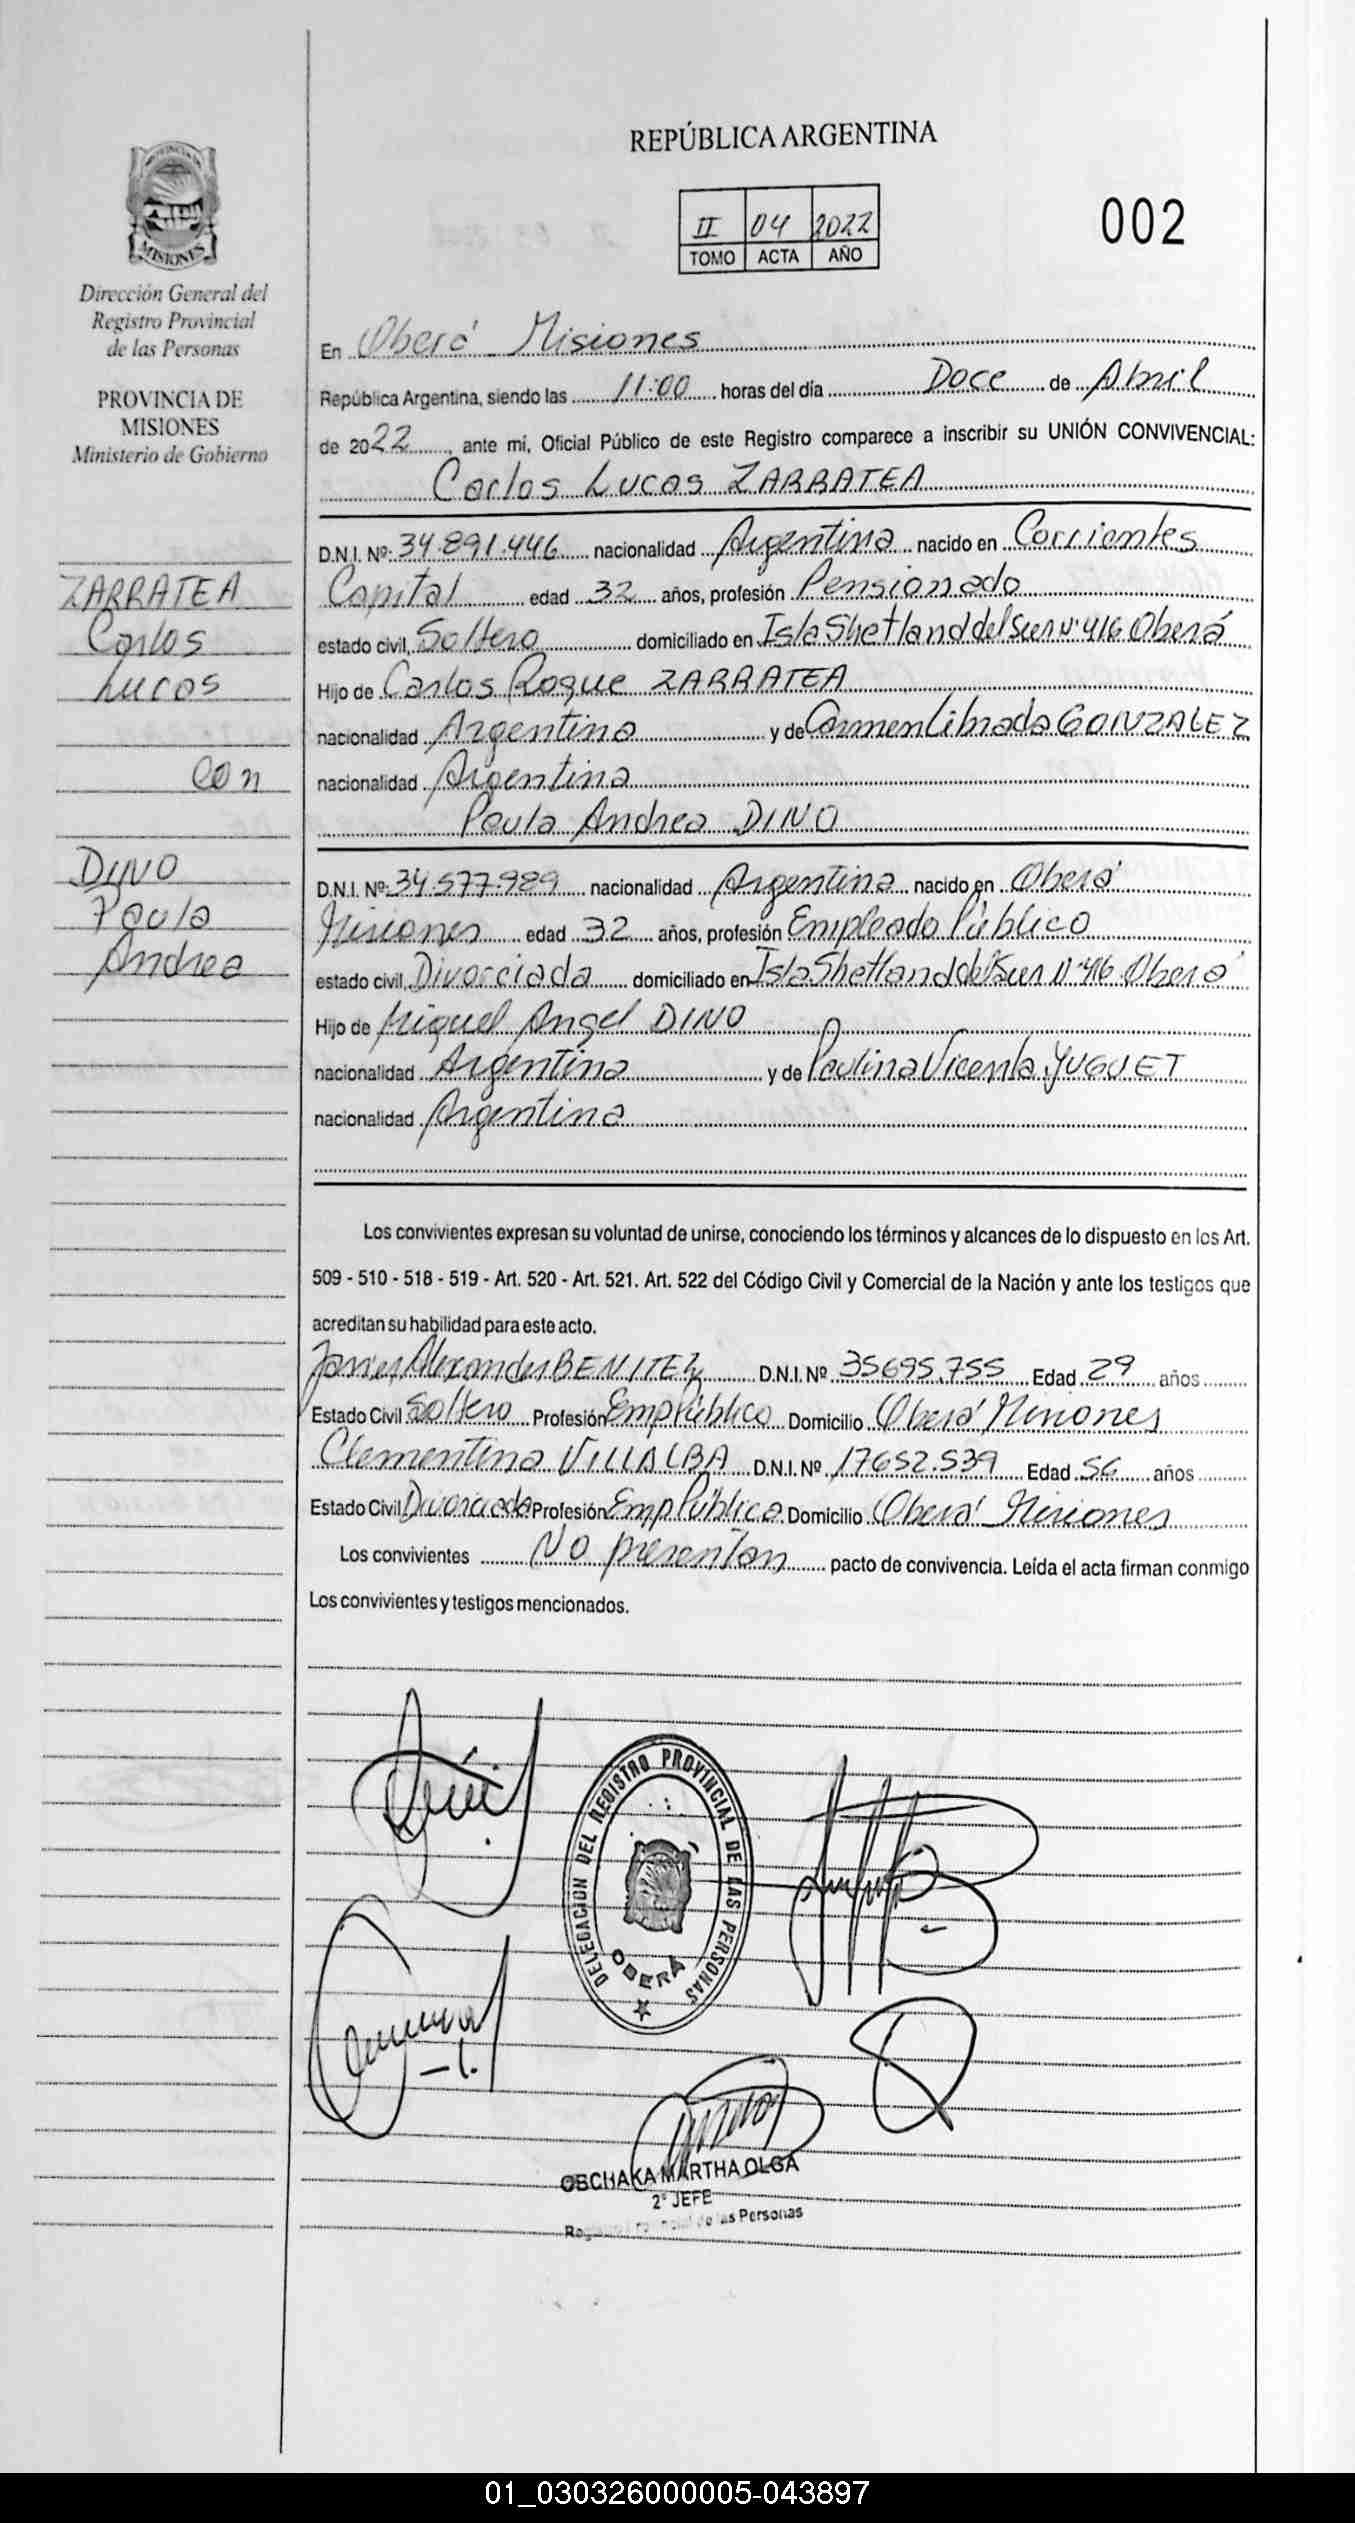 REPÚBLICA ARGENTINA
II 04 2022
TOMO ACTA AÑO
002
MISIONES
Dirección General del
Registro Provincial
de las Personas
PROVINCIA DE
MISIONES
Ministerio de Gobierno
En Oberá Misiones
República Argentina, siendo las 11:00 horas del día Doce de Abril
de 2022, ante mí, Oficial Público de este Registro comparece a inscribir su UNIÓN CONVIVENCIAL:
Carlos Lucas ZARRATEA
D.N.I. Nº: 34.891.446 nacionalidad Argentina nacido en Corrientes
Capital edad 32 años, profesión Pensionado
estado civil, Soltero domiciliado en Isla Shetland del Sur Nº 416 Oberá
Hijo de Carlos Roque ZARRATEA
nacionalidad Argentina y de Carmen Librada GONZALEZ
nacionalidad Argentina
Paula Andrea DINO
D.N.I. Nº: 34.577.989 nacionalidad Argentina nacido en Oberá
Misiones edad 32 años, profesión Empleado Público
estado civil, Divorciada domiciliado en Isla Shetland del Sur Nº 416 Oberá
Hijo de Miguel Angel DINO
nacionalidad Argentina y de Paulina Vicenta YUGUET
nacionalidad Argentina
ZARRATEA
Carlos
Lucas
Con
DINO
Paula
Andrea
Los convivientes expresan su voluntad de unirse, conociendo los términos y alcances de lo dispuesto en los Art.
509 - 510 - 518 - 519 - Art. 520 - Art. 521. Art. 522 del Código Civil y Comercial de la Nación y ante los testigos que
acreditan su habilidad para este acto.
Javier Alexander BENITEZ D.N.I. Nº 35695.755 Edad 29 años
Estado Civil Soltero Profesión Emp Público Domicilio Oberá Misiones
Clementina VILLALBA D.N.I. Nº 17652.539 Edad 56 años
Estado Civil Divorciada Profesión Emp Público Domicilio Oberá Misiones
Los convivientes No presentan pacto de convivencia. Leída el acta firman conmigo
Los convivientes y testigos mencionados.
DELEGACIÓN DEL REGISTRO PROVINCIAL DE LAS PERSONAS
OBERÁ
OBCHAKA MARTHA OLGA
2º JEFE
Registro Provincial de las Personas
01_030326000005-043897